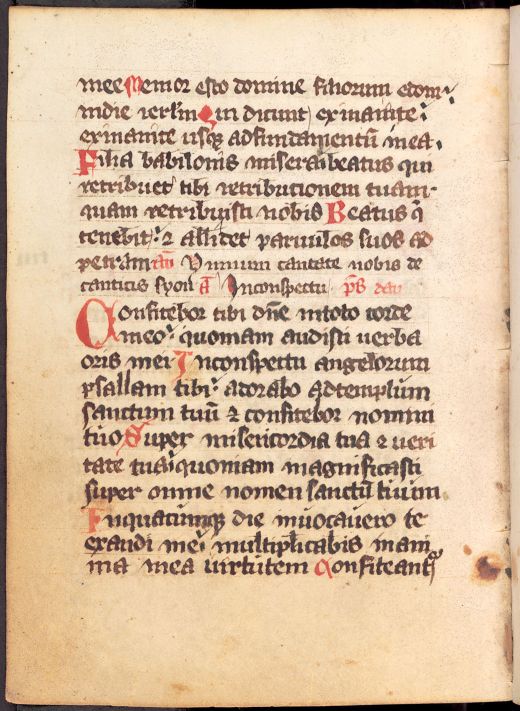 mee Memor esto domine filiorum edom
indie ierl'm Qui dicunt exinanite
exinanite usq; ad fundamentū in ea
Filia babilonis misera beatus qui
retribuet tibi retributionem tuam
quam retribuisti nobis Beatus q̄
tenebit ⁊ allidet parvulos suos ad
petram añ Ymnum cantate nobis de
canticis syon a Inconspectu p̄s dav
Confitebor tibi dn̄e in toto corde
meo quoniam audisti verba
oris mei Inconspectu angelorum
psallam tibi adorabo ad templum
sanctum tuū ⁊ confitebor nomini
tuo Super misericordia tua ⁊ veri
tate tua quoniam magnificasti
super omne nomen sanctū tuum
Inquacumq; die invocavero te
exaudi me multiplicabis in ani
ma mea virtutem Confiteant